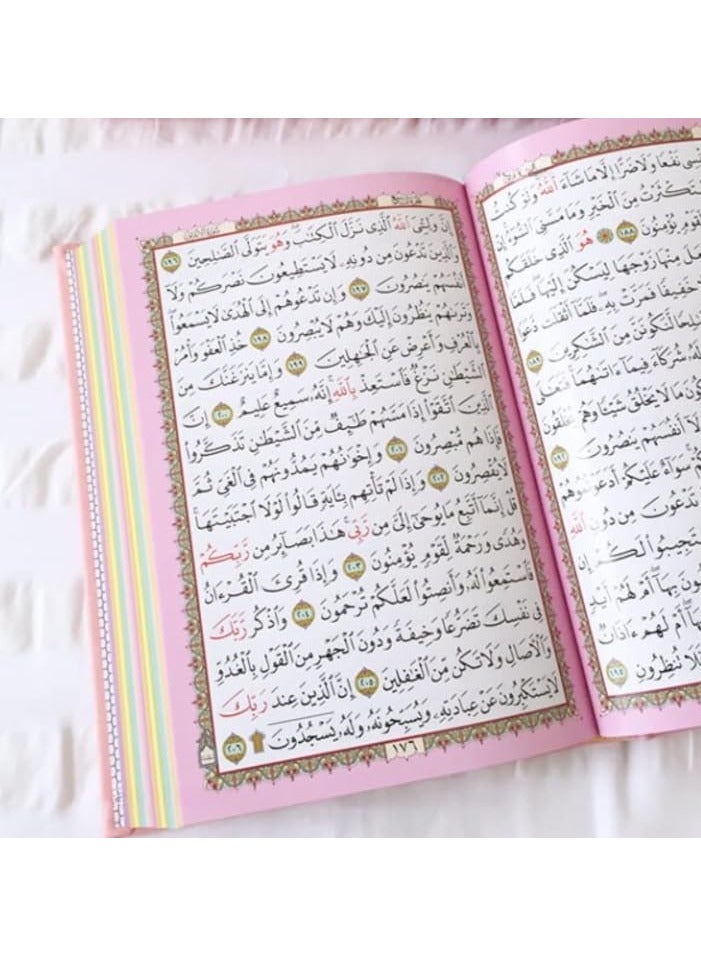 نَفْعًا وَلَا ضَرًّا إِلَّا مَا شَاءَ ٱللَّهُ وَلَوْ كُنتُ
مِنَ ٱلْخَيْرِ وَمَا مَسَّنِىَ ٱلسُّوٓءُ إِنْ
لِّقَوْمٍ يُؤْمِنُونَ ١٨٨ هُوَ ٱلَّذِى خَلَقَكُم
مِنْهَا زَوْجَهَا لِيَسْكُنَ إِلَيْهَا فَلَمَّا
خَفِيفًا فَمَرَّتْ بِهِۦ فَلَمَّآ أَثْقَلَت دَّعَوَا
صَٰلِحًا لَّنَكُونَنَّ مِنَ ٱلشَّٰكِرِينَ ١٨٩
لَهُۥ شُرَكَآءَ فِيمَآ ءَاتَىٰهُمَا فَتَعَٰلَى
مَا لَا يَخْلُقُ شَيْـًٔا وَهُمْ يُخْلَقُونَ
وَلَآ أَنفُسَهُمْ يَنصُرُونَ ١٩٢
سَوَآءٌ عَلَيْكُمْ أَدَعَوْتُمُوهُمْ
تَدْعُونَ مِن دُونِ ٱللَّهِ
لَكُمْ إِن
بِهَآ أَمْ لَهُمْ أَيْدٍ
بِهَآ أَمْ لَهُمْ ءَاذَانٌ
فَلَا تُنظِرُونِ ١٩٥
إِنَّ وَلِـِّۧىَ ٱللَّهُ ٱلَّذِى نَزَّلَ ٱلْكِتَٰبَ وَهُوَ يَتَوَلَّى ٱلصَّٰلِحِينَ ١٩٦
وَٱلَّذِينَ تَدْعُونَ مِن دُونِهِۦ لَا يَسْتَطِيعُونَ نَصْرَكُمْ وَلَآ
أَنفُسَهُمْ يَنصُرُونَ ١٩٧ وَإِن تَدْعُوهُمْ إِلَى ٱلْهُدَىٰ لَا يَسْمَعُوا۟
وَتَرَىٰهُمْ يَنظُرُونَ إِلَيْكَ وَهُمْ لَا يُبْصِرُونَ ١٩٨ خُذِ ٱلْعَفْوَ وَأْمُرْ
بِٱلْعُرْفِ وَأَعْرِضْ عَنِ ٱلْجَٰهِلِينَ ١٩٩ وَإِمَّا يَنزَغَنَّكَ مِنَ
ٱلشَّيْطَٰنِ نَزْغٌ فَٱسْتَعِذْ بِٱللَّهِ إِنَّهُۥ سَمِيعٌ عَلِيمٌ ٢٠٠ إِنَّ
ٱلَّذِينَ ٱتَّقَوْا۟ إِذَا مَسَّهُمْ طَٰٓئِفٌ مِّنَ ٱلشَّيْطَٰنِ تَذَكَّرُوا۟
فَإِذَا هُم مُّبْصِرُونَ ٢٠١ وَإِخْوَٰنُهُمْ يَمُدُّونَهُمْ فِى ٱلْغَىِّ ثُمَّ
لَا يُقْصِرُونَ ٢٠٢ وَإِذَا لَمْ تَأْتِهِم بِـَٔايَةٍ قَالُوا۟ لَوْلَا ٱجْتَبَيْتَهَا
قُلْ إِنَّمَآ أَتَّبِعُ مَا يُوحَىٰٓ إِلَىَّ مِن رَّبِّى هَٰذَا بَصَآئِرُ مِن رَّبِّكُمْ
وَهُدًى وَرَحْمَةٌ لِّقَوْمٍ يُؤْمِنُونَ ٢٠٣ وَإِذَا قُرِئَ ٱلْقُرْءَانُ
فَٱسْتَمِعُوا۟ لَهُۥ وَأَنصِتُوا۟ لَعَلَّكُمْ تُرْحَمُونَ ٢٠٤ وَٱذْكُر رَّبَّكَ
فِى نَفْسِكَ تَضَرُّعًا وَخِيفَةً وَدُونَ ٱلْجَهْرِ مِنَ ٱلْقَوْلِ بِٱلْغُدُوِّ
وَٱلْـَٔاصَالِ وَلَا تَكُن مِّنَ ٱلْغَٰفِلِينَ ٢٠٥ إِنَّ ٱلَّذِينَ عِندَ رَبِّكَ
لَا يَسْتَكْبِرُونَ عَنْ عِبَادَتِهِۦ وَيُسَبِّحُونَهُۥ وَلَهُۥ يَسْجُدُونَ ۩ ٢٠٦
١٧٦